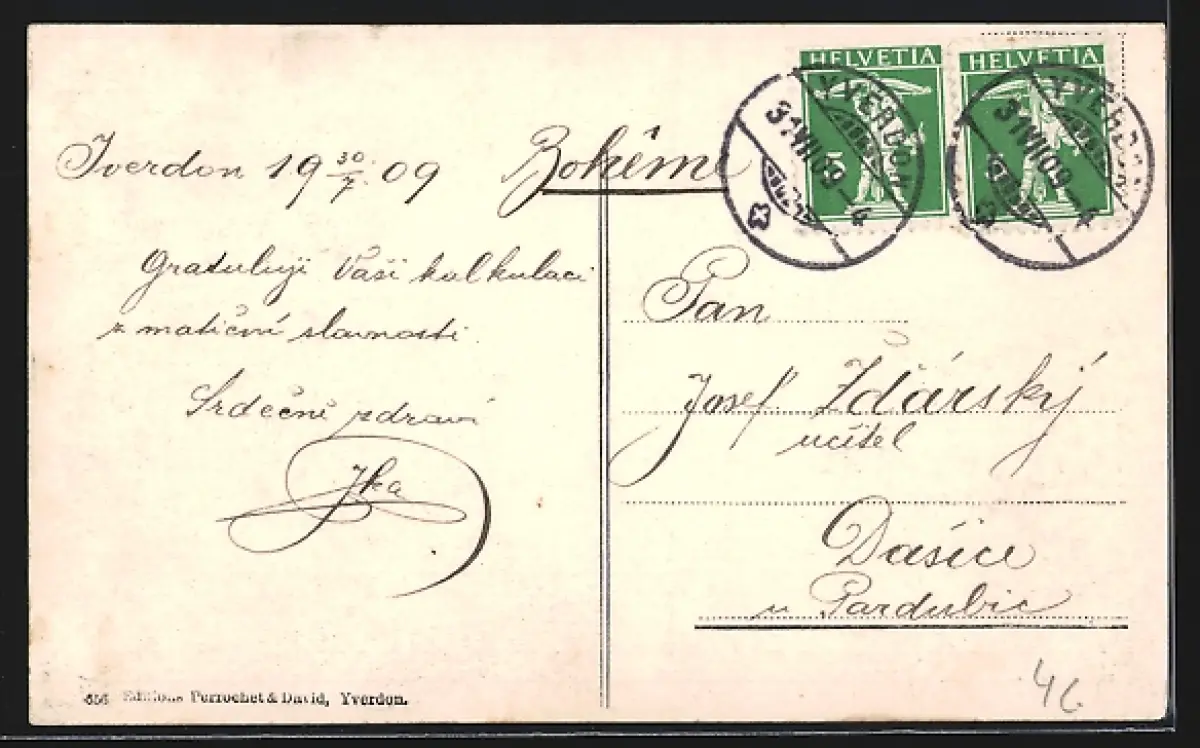 HELVETIA HELVETIA
5
YVERDON
31 VII 09 - 4
YVERDON
31 VII 09 - 4
Yverdon 19 30/7 09
Bohême
Gratuluji Vaši kalkulaci
z matiční slavnosti.
Srdečně zdraví
Pan
Josef Žďárský
učitel
Dašice
u Pardubic
656 Editions Perrochet & David, Yverdon.
46